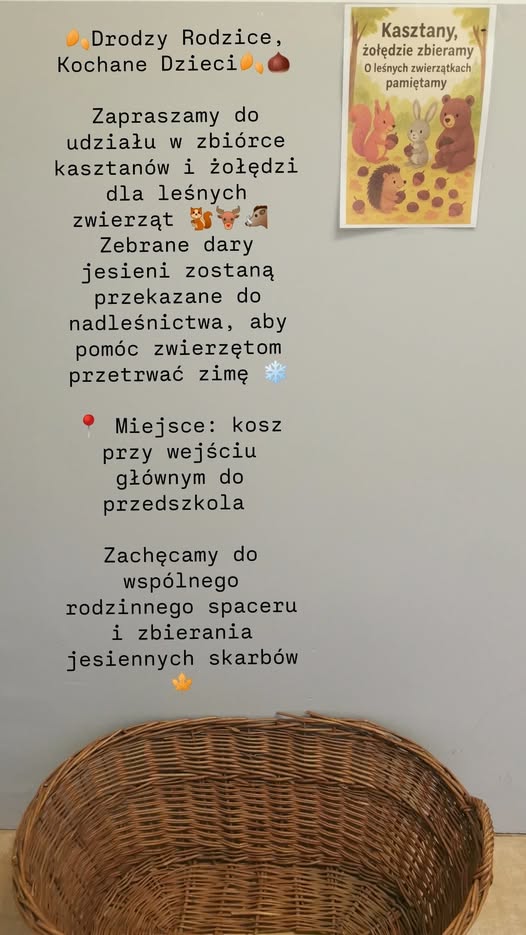 🍂Drodzy Rodzice,
Kochane Dzieci🍂🌰
Zapraszamy do
udziału w zbiórce
kasztanów i żołędzi
dla leśnych
zwierząt 🐿️🦌🐗
Zebrane dary
jesieni zostaną
przekazane do
nadleśnictwa, aby
pomóc zwierzętom
przetrwać zimę ❄️
📍 Miejsce: kosz
przy wejściu
głównym do
przedszkola
Zachęcamy do
wspólnego
rodzinnego spaceru
i zbierania
jesiennych skarbów
🍁
Kasztany,
żołędzie zbieramy
O leśnych zwierzątkach
pamiętamy